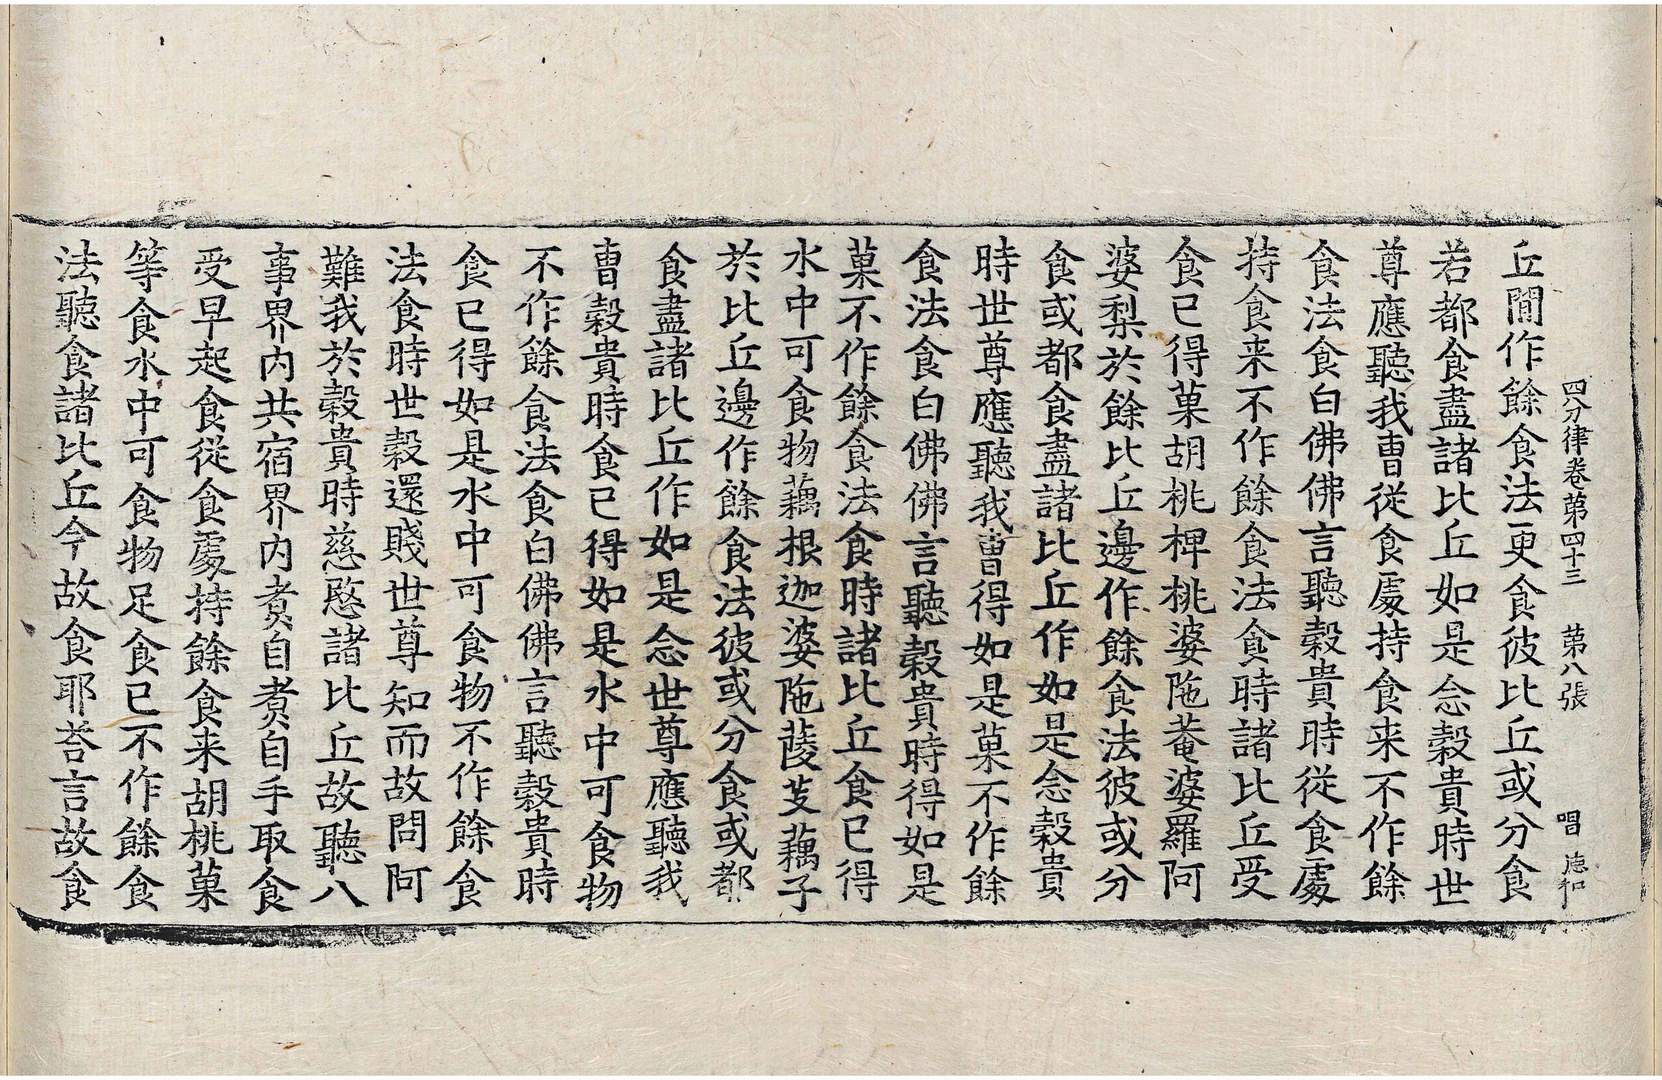 四分律卷第四十三　第八張　唱　德和
丘間作餘食法更食彼比丘或分食
若都食盡諸比丘如是念穀貴時世
尊應聽我曹從食處持食来不作餘
食法食白佛佛言聽穀貴時從食處
持食来不作餘食法食時諸比丘受
食已得菓胡桃椑桃婆陁菴婆羅阿
婆梨於餘比丘邊作餘食法彼或分
食或都食盡諸比丘作如是念穀貴
時世尊應聽我曹得如是菓不作餘
食法食白佛佛言聽穀貴時得如是
菓不作餘食法食時諸比丘食已得
水中可食物藕根迦婆陁䔖芰藕子
於比丘邊作餘食法彼或分食或都
食盡諸比丘作如是念世尊應聽我
曹穀貴時食已得如是水中可食物
不作餘食法食白佛佛言聽穀貴時
食已得如是水中可食物不作餘食
法食時世穀還賤世尊知而故問阿
難我於穀貴時慈愍諸比丘故聽八
事界内共宿界内煑自煑自手取食
受早起食從食處持餘食来胡桃菓
等食水中可食物足食已不作餘食
法聽食諸比丘今故食耶荅言故食